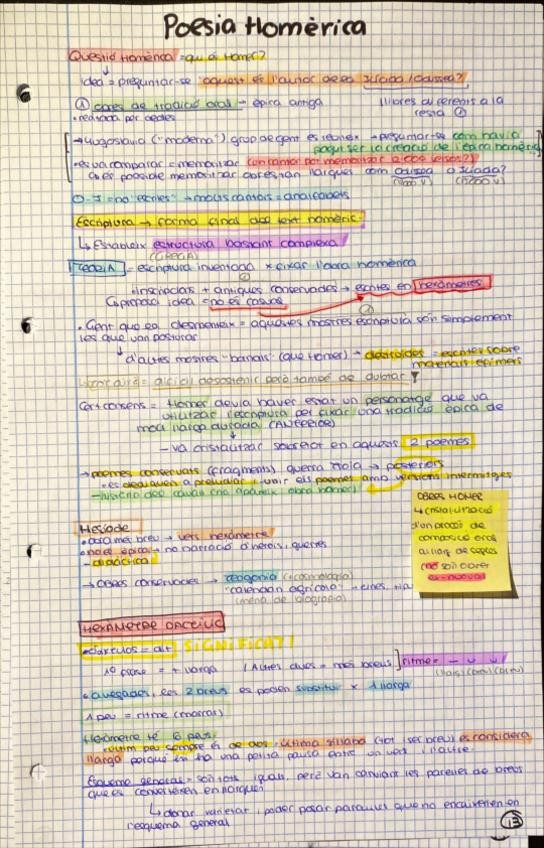 Poesia Homèrica
Questió Homèrica = qui és Homer?
idea = preguntar-se aquest és l'autor de la Ilíada i Odissea?
① obres de tradició oral → èpica antiga
· recitada per aedes
llibres diferents a la resta
→ Iugoslàvia ("moderna") grup de gent es reuneix → preguntar-se com havia
pogut ser la creació de l'èpica homèrica
és possible memoritzar obres tan llargues com odissea o ilíada?
(12000 v) (15000 v)
Escriptura → forma final del text homèric.
↳ Estableix estructura bastant complexa
(GREGA)
TEORIA = escriptura inventada x fixar l'obra homèrica
· inscripcions + antigues conservades → escrites en hexàmetres
↳ proposa idea = no és casual
· Gent que ho desmenteix = aquestes mostres escriptura són simplement
les que van perdurar
↓ d'altres mostres "banals" (que Homer) → destruïdes = escrites sobre
materials efímers
difícil de sostenir però també de
Cert consens = Homer devia haver estat un personatge que va
utilitzar l'escriptura per fixar una tradició èpica de
molt llarga durada (ANTERIOR)
– va cristalitzar sobretot en aquests 2 poemes
→ poemes conservats (fragments) guerra Troia → posteriors
· es dediquen a preludiar i unir els poemes amb versions intermitges
– història del cavall (no apareix obra Homer)
OBRES HOMER
↳ cristalització
d'un procés de
composició oral
al llarg de segles
(no són obres
ex-novo)
Hesíode
· obra més breu → vers hexàmetre
· no és èpica → no narració d'herois, guerres
– didàctica
→ Obres conservades → teogonia (+ cosmologia)
"calendari agrícola"
(mena de biografia)
HEXÀMETRE DACTÍLIC
· dàctilos = dit SIGNIFICAT!
1a = + llarga (Altres dues = més breus) ritme = – u u
(llarg/breu/breu)
· a vegades, les 2 breus es poden substituir x 1 llarga
1 peu = ritme
Hexàmetre té 6 peus.
· últim peu sempre és de dos: última síl·laba (tot i ser breu) es considera
llarga perquè hi ha una petita pausa entre un vers i l'altre.
Esquema general = són tots iguals, però van canviant les parelles de breus
que es converteixen en llargues
↳ donar varietat i poder posar paraules que no encaixen en
l'esquema general
13